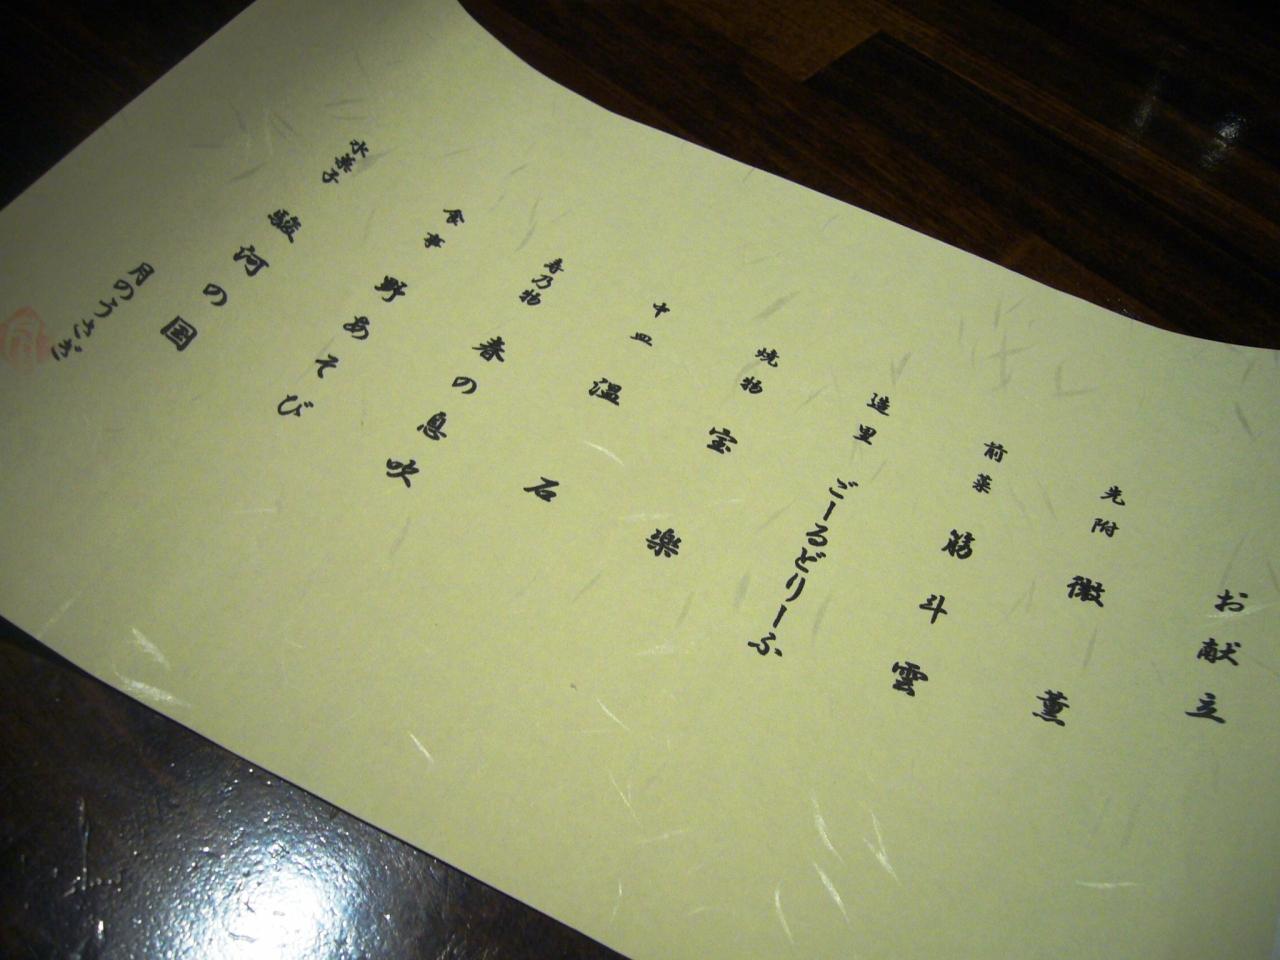 お献立
先附 微薫
前菜 筋斗雲
造里 ごーるどりーふ
焼物 宝楽
中皿 温石
寿乃物 春の息吹
食事 野あそび
水菓子 駿河の国
月のうさぎ